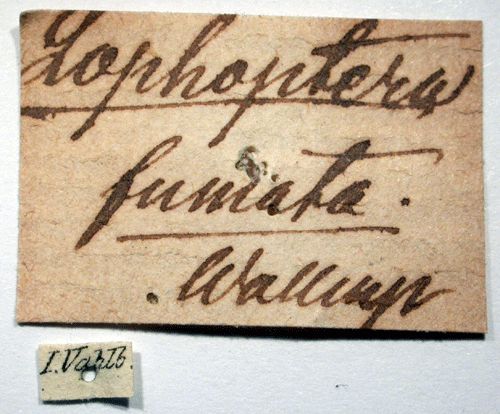 Lophoptera
fumata.
Wallengr
I. Vahlb.